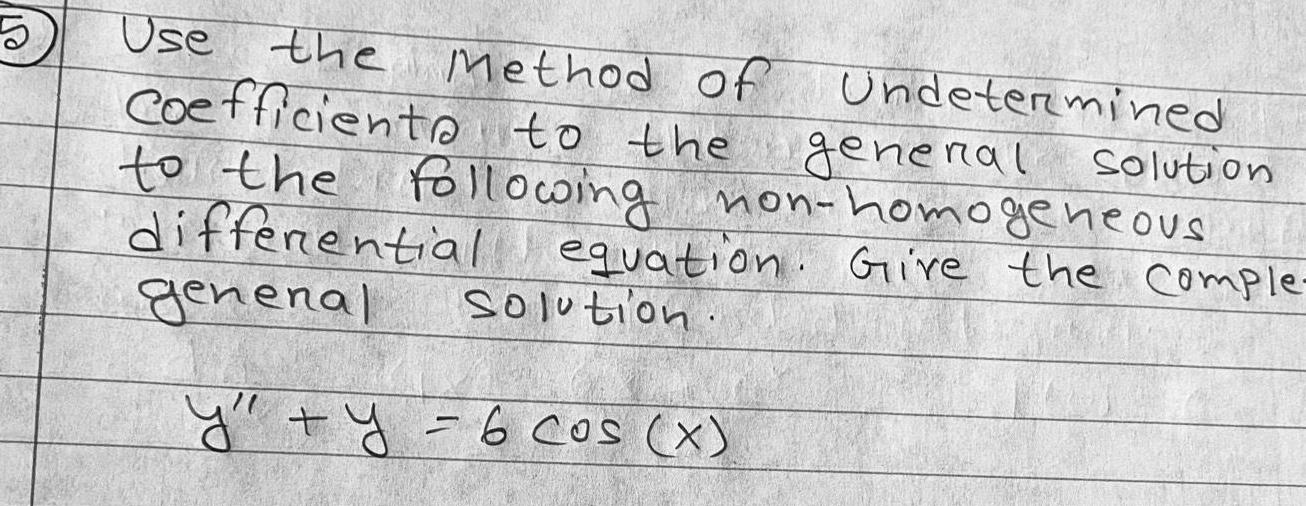 5 Use the Method of Undetermined
Coefficients to the general solution
to the following non-homogeneous
differential equation. Give the comple
general solution.
y'' + y = 6 cos (x)